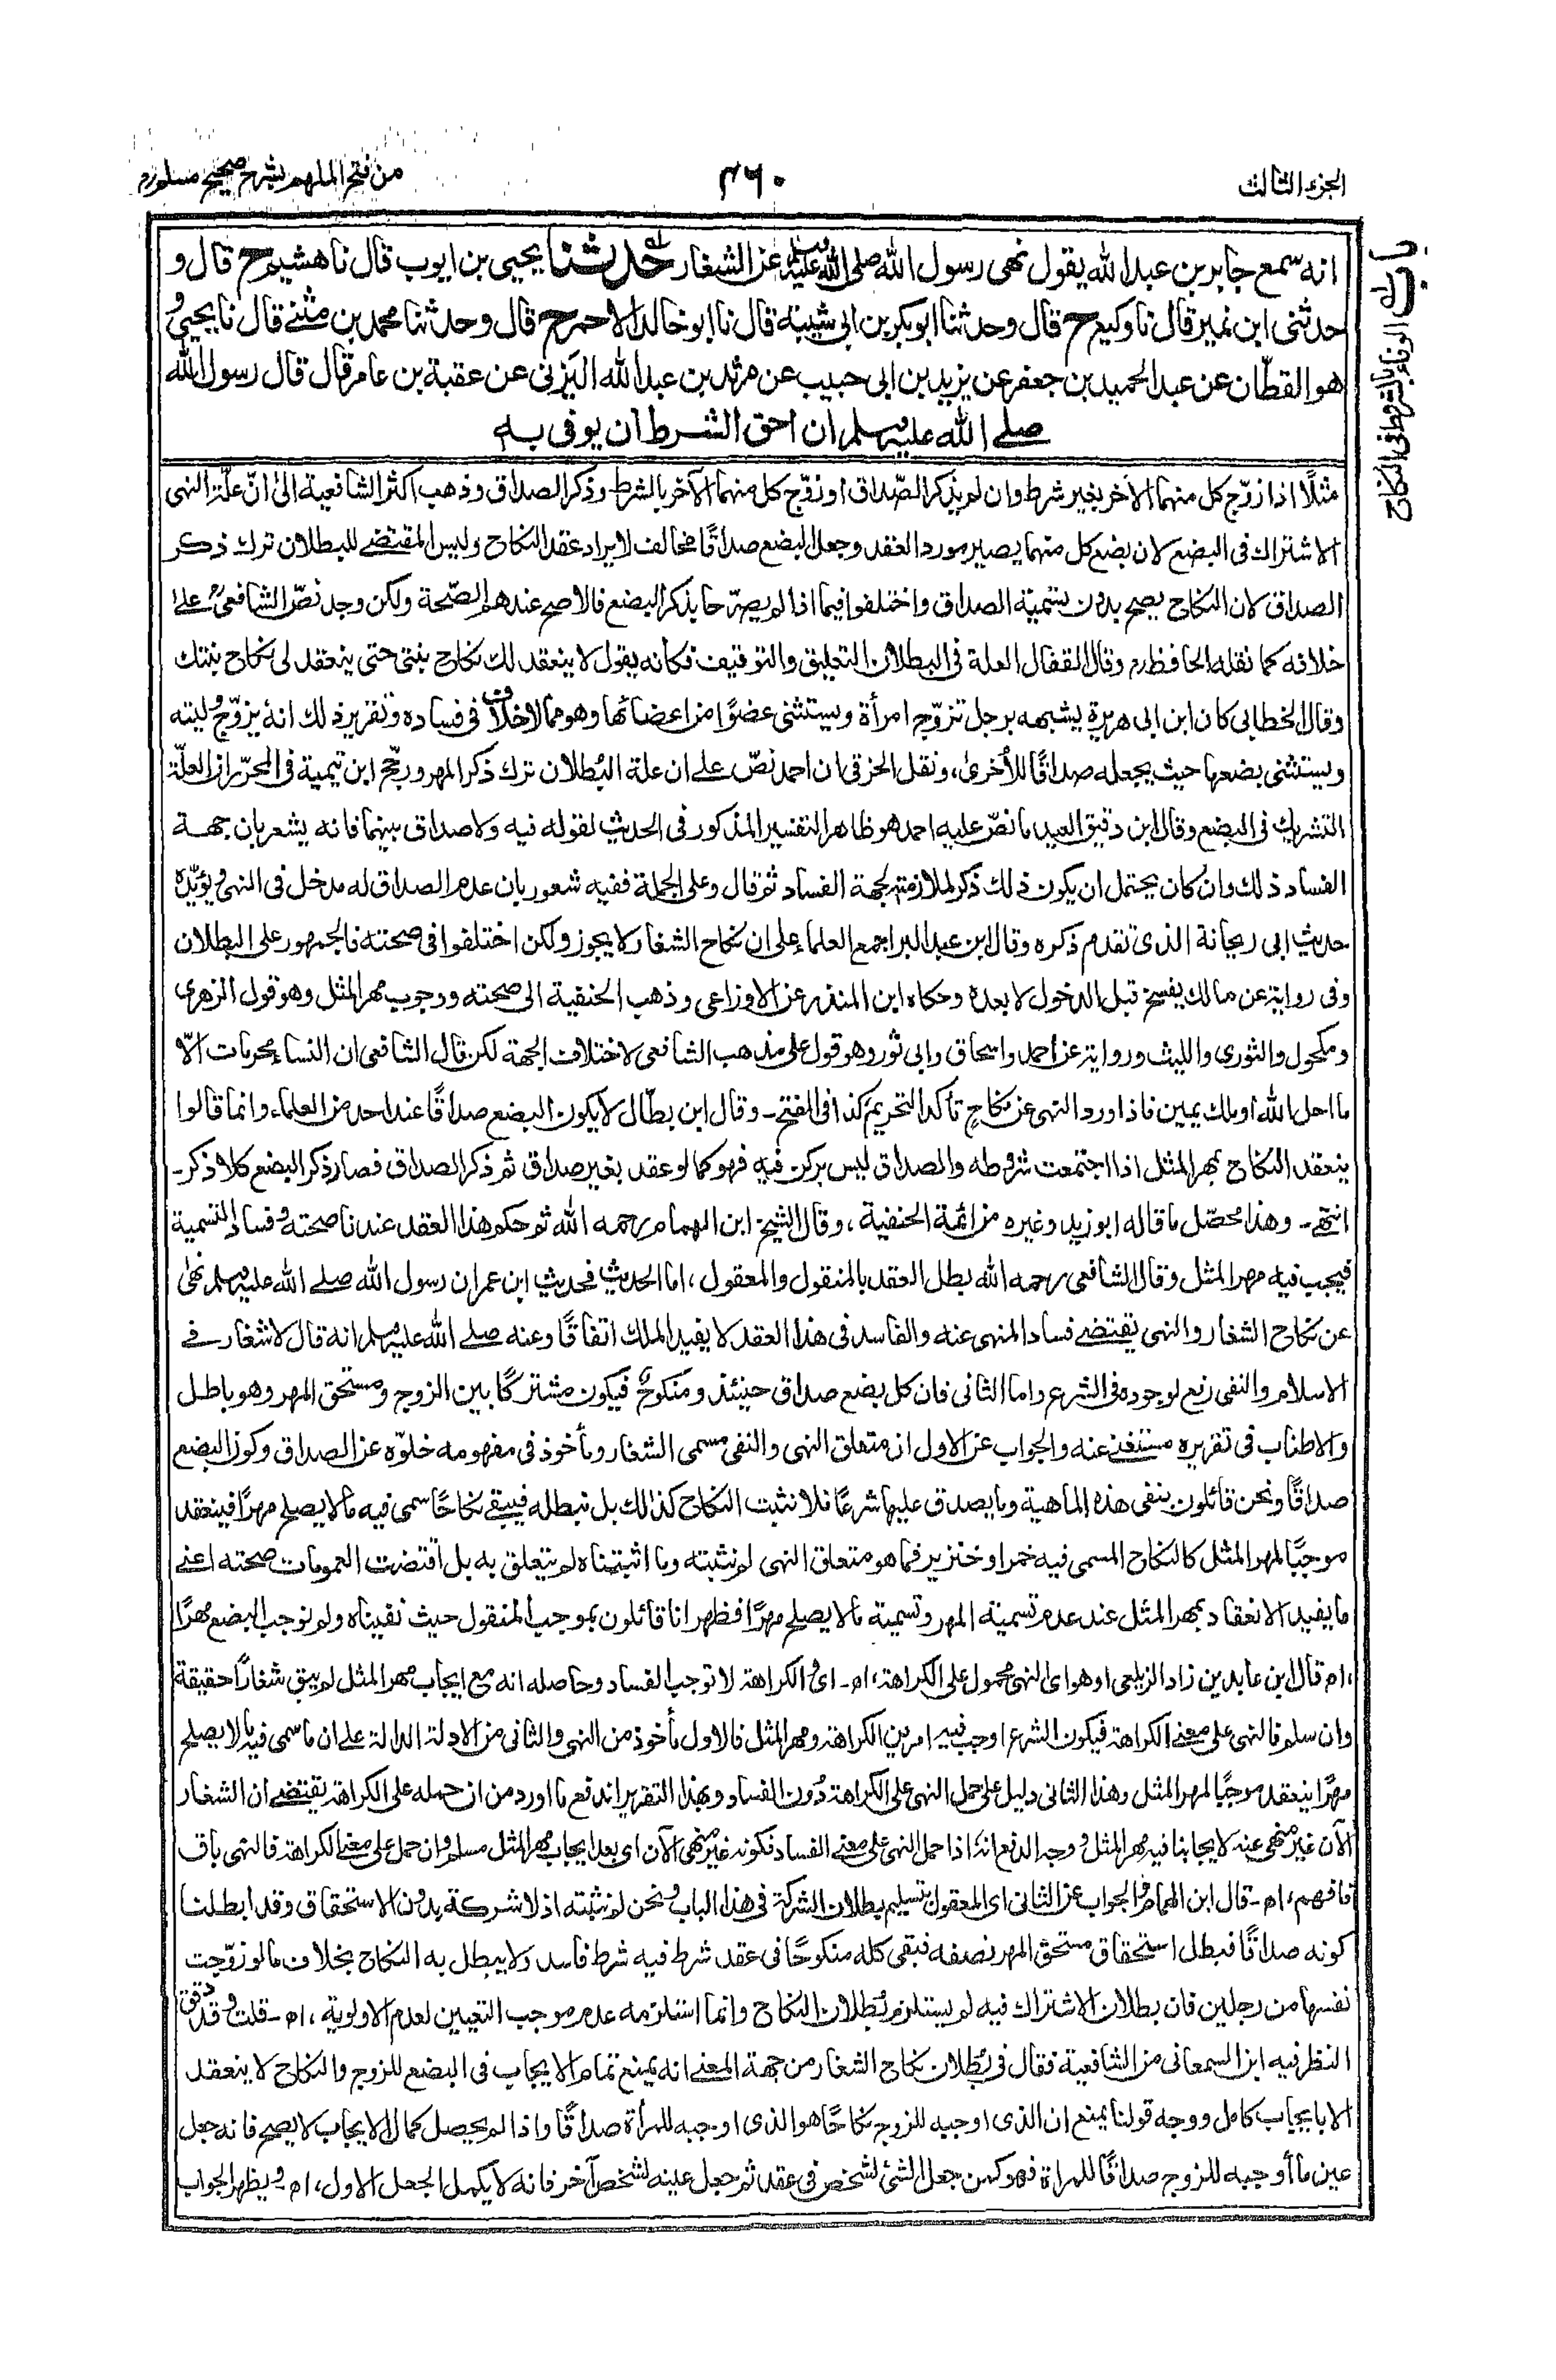 الجزء الثالث
۴۶۰
من فتح الملهم بشرح صحيح مسلم رح
باب الوفاء بالشروط فى النكاح
انه سمع جابر بن عبد الله يقول نهى رسول الله صلى الله عليه وسلم عن الشغار حدثنا يحيى بن ايوب قال نا هشيم ح قال و
حدثنى ابن نمير قال نا وكيع ح قال وحدثنا ابو بكر بن ابى شيبة قال نا ابو خالد الاحمر ح قال وحدثنا محمد بن مثنے قال نا يحيى و
هو القطّان عن عبد الحميد بن جعفر عن يزيد بن ابى حبيب عن مرثد بن عبد الله اليَزنى عن عقبة بن عامر قال قال رسول الله
صلے الله عليه وسلم ان احق الشرط ان يوفى به
مثلًا اذا زوّج كل منهما الآخر بغير شرط وان لم يذكر الصّداق او زوّج كل منهما الآخر بالشرط وذكر الصداق وذهب اكثر الشافعية الىٰ انّ علّة النهى
الاشتراك فى البضع لان بضع كل منهما يصير مورد العقد وجعل البضع صداقًا مخالف لايراد عقد النكاح وليس المقتضے للبطلان ترك ذكر
الصداق لان النكاح يصح بدون تسمية الصداق واختلفوا فيما اذا لم يصرّحا بذكر البضع فالاصح عندهم الصّحة ولكن وجد نصّ الشافعىؒ علىٰ
خلافه كما نقله الحافظ رح وقال القفال العلة فى البطلان التعليق والتوقيف فكأنه يقول لا ينعقد لك نكاح بنتى حتى ينعقد لى نكاح بنتك
وقال الخطابى كان ابن ابى هريرة يشبهه برجل تزوّج امرأة ويستثنى عضوًا من اعضائها وهو مما لا خلاف فى فساده وتقرير ذلك انه يزوّج وليته
ويستثنى بضعها حيث يجعله صداقًا للأخرىٰ، ونقل الخرقى ان احمد نصّ على ان علة البُطلان ترك ذكر المهر ورجّح ابن تيمية فى المحرّر ان العلّة
التشريك فى البضع وقال ابن دقيق العيد ما نصّ عليه احمد هو ظاهر التفسير المذكور فى الحديث لقوله فيه ولا صداق بينهما فانه يشعر بان جهة
الفساد ذلك وان كان يحتمل ان يكون ذلك ذكر لملازمته لجهة الفساد ثم قال وعلى الجملة ففيه شعور بان عدم الصداق له مدخل فى النهى ويؤيّده
حديث ابى ريحانة الذى تقدم ذكره وقال ابن عبد البر اجمع العلماء على ان نكاح الشغار لا يجوز ولكن اختلفوا فى صحته فالجمهور على البطلان
وفى رواية عن مالك يفسخ قبل الدخول لا بعده وحكاه ابن المنذر عن الاوزاعى وذهب الحنفية الى صحته ووجوب مهر المثل وهو قول الزهرى
ومكحول والثورى والليث ورواية عن احمد واسحاق وابى ثور وهو قول على مذهب الشافعى لاختلاف الجهة لكن قال الشافعى ان النساء محرمات الّا
ما احل الله او ملك يمين فاذا ورد النهى عن نكاحٍ تأكد التحريم كذا فى الفتح ـ وقال ابن بطّال لا يكون البضع صداقًا عند احد من العلماء وانما قالوا
ينعقد النكاح بمهر المثل اذا اجتمعت شروطه والصداق ليس بركن فيه فهو كما لو عقد بغير صداق ثم ذكر الصداق فصار ذكر البضع كلا ذكر ـ
انتهٰى ـ وهذا محصّل ما قاله ابو زيد وغيره من ائمة الحنفية، وقال الشيخ ابن الهمام رحمه الله ثم حكم هذا العقد عندنا صحته وفساد التسمية
فيجب فيه مهر المثل وقال الشافعى رحمه الله بطل العقد بالمنقول والمعقول، اما الحديث فحديث ابن عمر ان رسول الله صلے الله عليه وسلم نهىٰ
عن نكاح الشغار والنهى يقتضے فساد المنهى عنه والفاسد فى هذا العقد لا يفيد الملك اتفاقًا وعنه صلے الله عليه وسلم انه قال لا شغار فے
الاسلام والنفى رفع لوجوده فى الشرع واما الثانى فان كل بضع صداق حينئذ ومنكوحٌ فيكون مشتركًا بين الزوج ومستحق المهر وهو باطل
والاطناب فى تقريره مستغنےٰ عنه والجواب عن الاول ان متعلق النهى والنفى مسمى الشغار ومأخوذ فى مفهومه خلوّه عن الصداق وكون البضع
صداقًا ونحن قائلون بنفى هذه الماهية وما يصدق عليها شرعًا فلا نثبت النكاح كذلك بل نبطله فيبقى نكاحًا سمى فيه ما لا يصلح مهرًا فينعقد
موجبًا لمهر المثل كالنكاح المسمى فيه خمر او خنزير فما هو متعلق النهى لم نثبته وما اثبتناه لم يتعلق به بل اقتضت العمومات صحته اعنے
ما يفيد الانعقاد بمهر المثل عند عدم تسمية المهر وتسمية ما لا يصلح مهرًا فظهر انا قائلون بموجب المنقول حيث نفيناه ولم نوجب البضع مهرًا
، اه قال ابن عابدين زاد الزيلعى او هو اى النهى محمول على الكراهة، اه ـ اى والكراهة لا توجب الفساد وحاصله انه مع ايجاب مهر المثل لم يبق شغارًا حقيقة
وان سلم فالنهى على معنے الكراهة فيكون الشرع اوجب فيه امرين الكراهة ومهر المثل فالاول مأخوذ من النهى والثانى من الادلة الدالة على ان ما سمى فيه ما لا يصلح
مهرًا ينعقد موجبًا لمهر المثل وهذا الثانى دليل على حمل النهى على الكراهة دُون الفساد وبهذا التقرير اندفع ما اورد من ان حمله على الكراهة يقتضے ان الشغار
الآن غير منهى عنه لايجابنا فيه مهر المثل ووجه الدفع انه اذا حمل النهى على معنے الفساد فكونه غير منهى الآن اى بعد ايجاب مهر المثل مسلم وان حمل على معنے الكراهة فالنهى باق
فافهم، اه ـ قال ابن الهمام والجواب عن الثانى اى المعقول بتسليم بطلان الشركة فى هذا الباب ونحن لم نثبته اذ لا شركة بدون الاستحقاق وقد ابطلنا
كونه صداقًا فبطل استحقاق مستحق المهر نصفه فبقى كله منكوحًا فى عقد شرط فيه شرط فاسد ولا يبطل به النكاح بخلاف ما لو زوّجت
نفسها من رجلين فان بطلان الاشتراك فيه لم يستلزم بُطلان النكاح وانما استلزمه عدم موجب التعيين لعدم الاولوية، اه ـ قلت وقد دقق
النظر فيه ابن السمعانى من الشافعية فقال فى بُطلان نكاح الشغار من جهة المعنے انه يمنع تمام الايجاب فى البضع للزوج والنكاح لا ينعقد
الا بايجاب كامل ووجه قولنا يمنع ان الذى اوجبه للزوج نكاحًا هو الذى اوجبه للمرأة صداقًا واذا لم يحصل كمال الايجاب لا يصح فانه جعل
عين ما أوجبه للزوج صداقًا للمرأة فهو كمن جعل الشئ لشخص فى عقد ثم جعل عينه لشخص آخر فانه لا يكمل الجعل الاول، اه ـ ويظهر الجواب